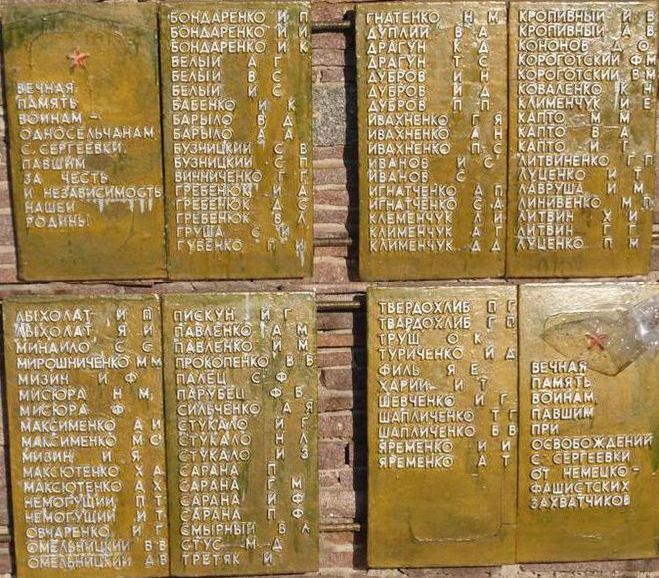 ВЕЧНАЯ
ПАМЯТЬ
ВОИНАМ –
ОДНОСЕЛЬЧАНАМ
С. СЕРГЕЕВКИ,
ПАВШИМ
ЗА ЧЕСТЬ
И НЕЗАВИСИМОСТЬ
НАШЕЙ
РОДИНЫ
БОНДАРЕНКО И П
БОНДАРЕНКО И И
БОНДАРЕНКО И К
БЕЛЫЙ А Г
БЕЛЫЙ В С
БЕЛЫЙ И С
БАБЕНКО И К
БАРЫЛО В Д
БАРЫЛО А А
БУЗНИЦКИЙ С В
БУЗНИЦКИЙ С П
ВИННИЧЕНКО Г Г
ГРЕБЕНЮК И Д
ГРЕБЕНЮК Д С
ГРЕБЕНЮК В Л
ГРУША С И
ГУБЕНКО П И
ГНАТЕНКО М М
ДУПЛИЙ В Д
ДРАГУН К Д
ДРАГУН Т С
ДУБРОВ И Н
ДУБРОВ И Д
ДУБРОВ П П
ИВАХНЕНКО Г Я
ИВАХНЕНКО А Н
ИВАХНЕНКО П С
ИВАНОВ И С
ИВАНОВ С
ИГНАТЧЕНКО А П
ИГНАТЧЕНКО С А
КЛЕМЕНЧУК Л И
КЛИМЕНЧУК Г И
КЛИМЕНЧУК Д Д
КРОПИВНЫЙ И В
КРОПИВНЫЙ А В
КОНОНОВ Д Ф
КОРОГОТСКИЙ Ф М
КОРОГОТСКИЙ В М
КОВАЛЕНКО К Н
КЛИМЕНЧУК И Е
КАПТО М М
КАПТО В А
КАПТО И Г
ЛИТВИНЕНКО Г П
ЛУЦЕНКО И Т
ЛАВРУША И М
ЛИНИВЕНКО М П
ЛИТВИН Х И
ЛИТВИН Г Г
ЛУЦЕНКО П М
ЛЫХОЛАТ И П
ЛЫХОЛАТ Я И
МИНАЙЛО С С
МИРОШНИЧЕНКО М М
МИЗИН И Ф
МИСЮРА Н М
МИСЮРА Ф
МАКСИМЕНКО А И
МАКСИМЕНКО М С
МИЗИН И Я
МАКСЮТЕНКО Х А
МАКСЮТЕНКО А Х
НЕМОГУЩИЙ П Т
НЕМОГУЩИЙ И Т
ОВЧАРЕНКО И Г
ОМЕЛЬНИЦКИЙ В В
ОМЕЛЬНИЦКИЙ А В
ПИСКУН И Г
ПАВЛЕНКО А М
ПАВЛЕНКО И М
ПРОКОПЕНКО В В
ПАЛЕЦ С Ф
ПАРУБЕЦ Ф В
СИЛЬЧЕНКО А Я
СТУКАЛО И Г
СТУКАЛО Н Л
СТУКАЛО И З
САРАНА П
САРАНА Г М
САРАНА И Ф
САРАНА П Ф
СМЫРНЫЙ В Л
СТУС М Д
ТРЕТЯК И
ТВЕРДОХЛИБ П Г
ТВАРДОХЛИБ Г П
ТРУШ О К
ТУРИЧЕНКО И Д
ФИЛЬ Я Е
ХАРИН И Т
ШЕВЧЕНКО И Г
ШАПЛИЧЕНКО Т Г
ШАПЛИЧЕНКО В В
ЯРЕМЕНКО И И
ЯРЕМЕНКО А Т
ВЕЧНАЯ
ПАМЯТЬ
ВОИНАМ,
ПАВШИМ
ПРИ
ОСВОБОЖДЕНИЙ
С СЕРГЕЕВКИ
ОТ НЕМЕЦКО-
ФАШИСТСКИХ
ЗАХВАТЧИКОВ